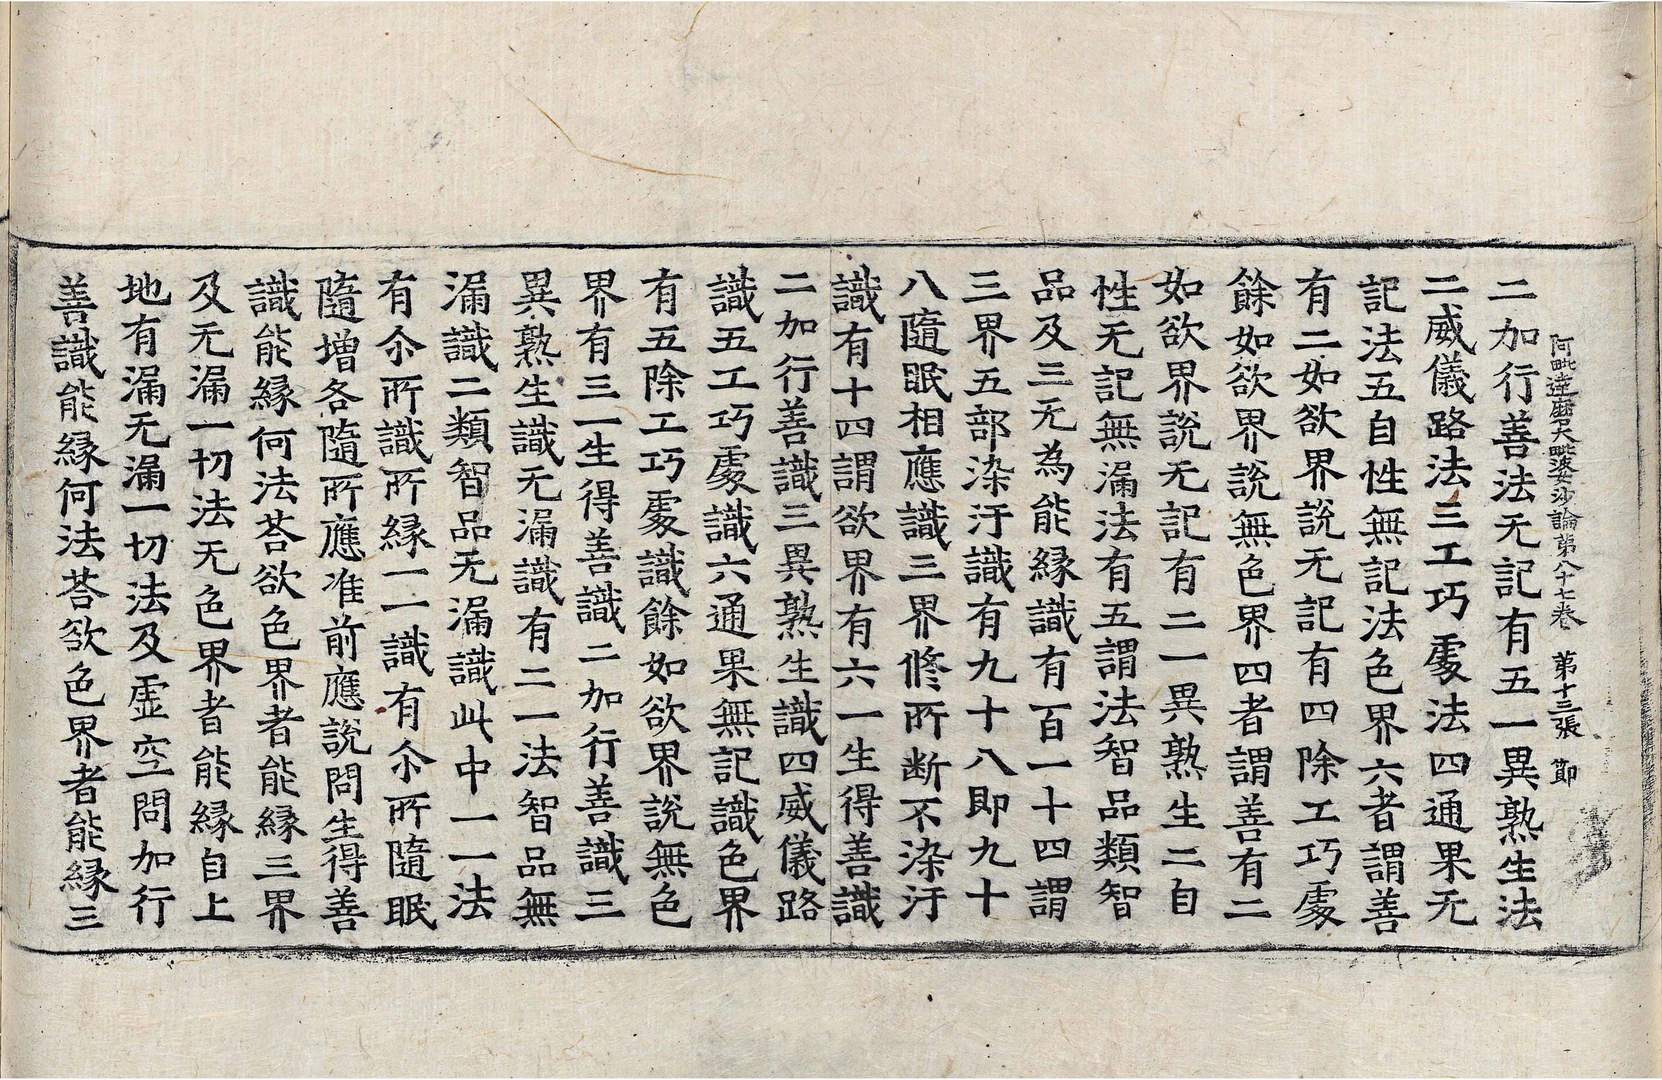 阿毗達磨大毗婆沙論第八十七卷 第十三張 節
二加行善法无記有五一異熟生法
二威儀路法三工巧處法四通果无
記法五自性無記法色界六者謂善
有二如欲界說无記有四除工巧處
餘如欲界說無色界四者謂善有二
如欲界說无記有二一異熟生二自
性无記無漏法有五謂法智品類智
品及三无為能緣識有百一十四謂
三界五部染汙識有九十八即九十
八隨眠相應識三界修所断不染汙
識有十四謂欲界有六一生得善識
二加行善識三異熟生識四威儀路
識五工巧處識六通果無記識色界
有五除工巧處識餘如欲界說無色
界有三一生得善識二加行善識三
異熟生識无漏識有二一法智品無
漏識二類智品无漏識此中一一法
有尒所識所緣一一識有尒所隨眠
隨增各隨所應准前應說問生得善
識能緣何法荅欲色界者能緣三界
及无漏一切法无色界者能緣自上
地有漏无漏一切法及虛空問加行
善識能緣何法荅欲色界者能緣三